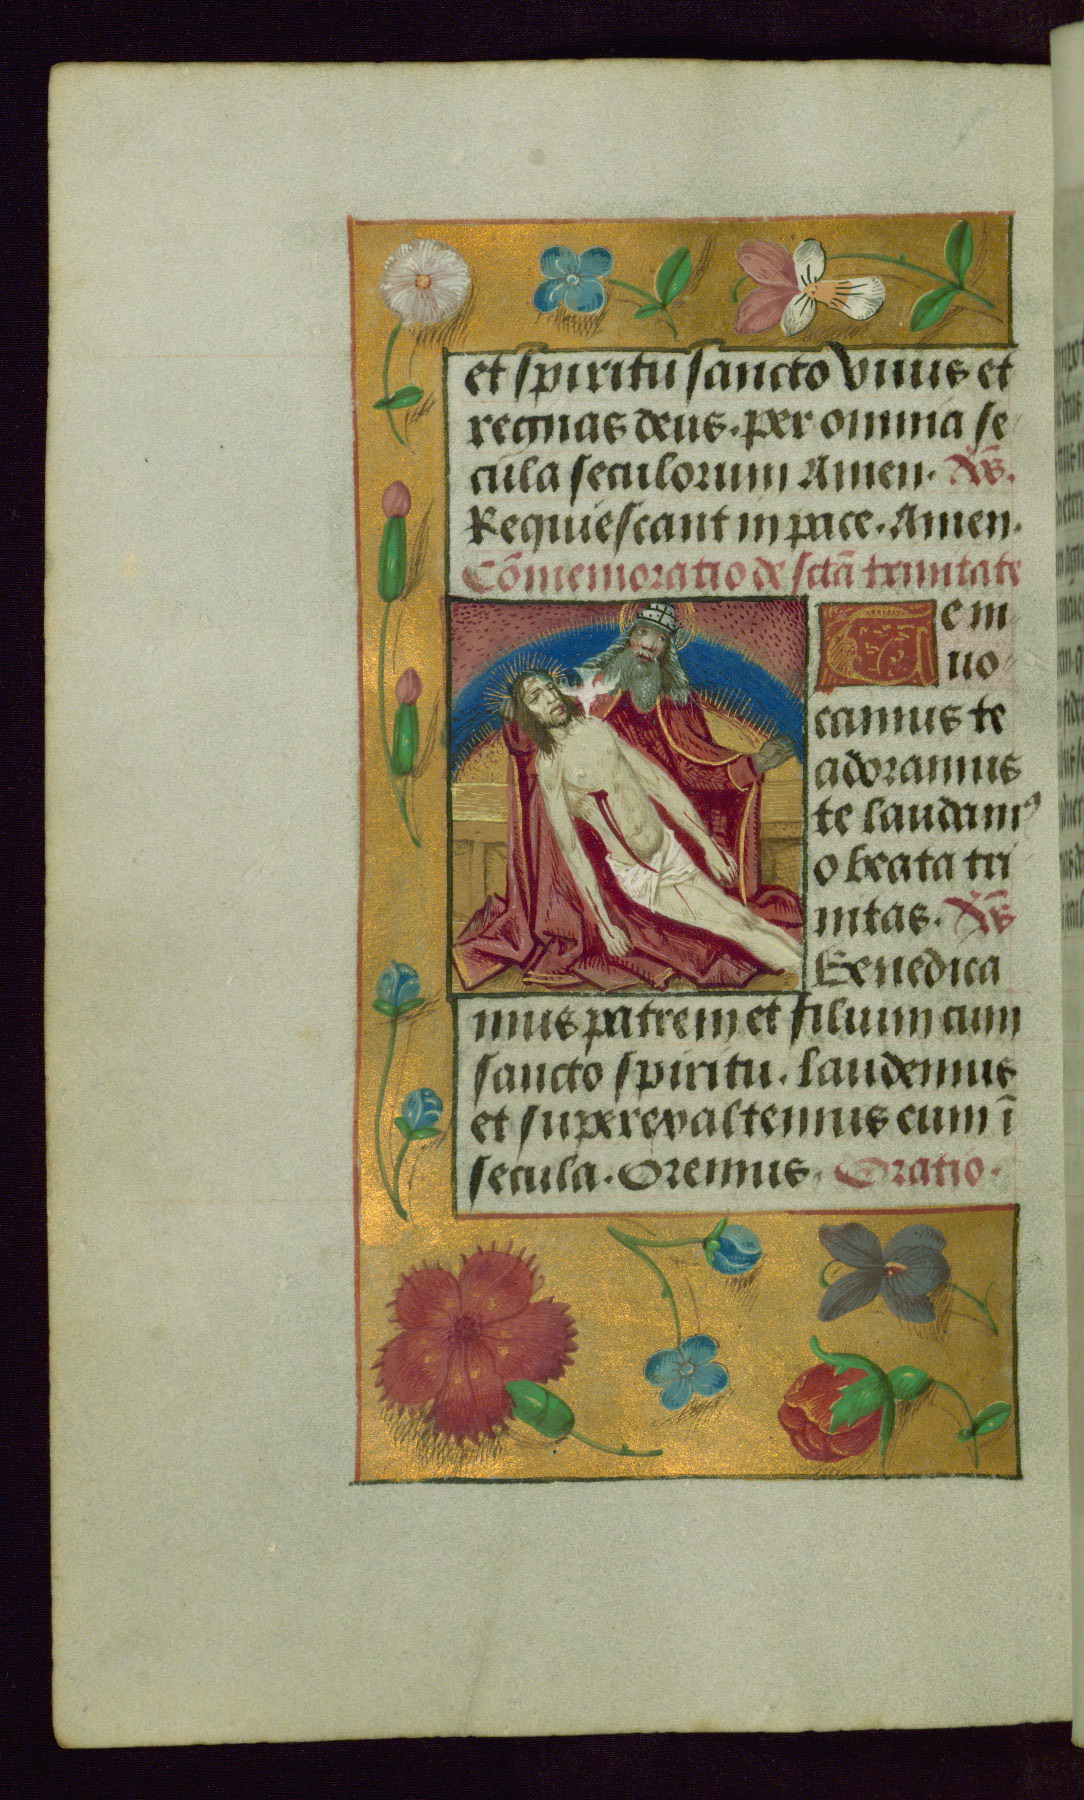 et spiritu sancto Vivis et
regnas deus. per omnia se
cula seculorum Amen. X̄v̄.
Requiescant in pace. Amen.
Cōmemoratio de sctā trinitate
Te in
uo
camus te
adoramus
te laudamꝰ
o beata tri
nitas. X̄v̄
Benedica
mus patrem et filium cum
sancto spiritu. laudemus
et superexaltemus eum ī
secula. Oremus. Oratio.